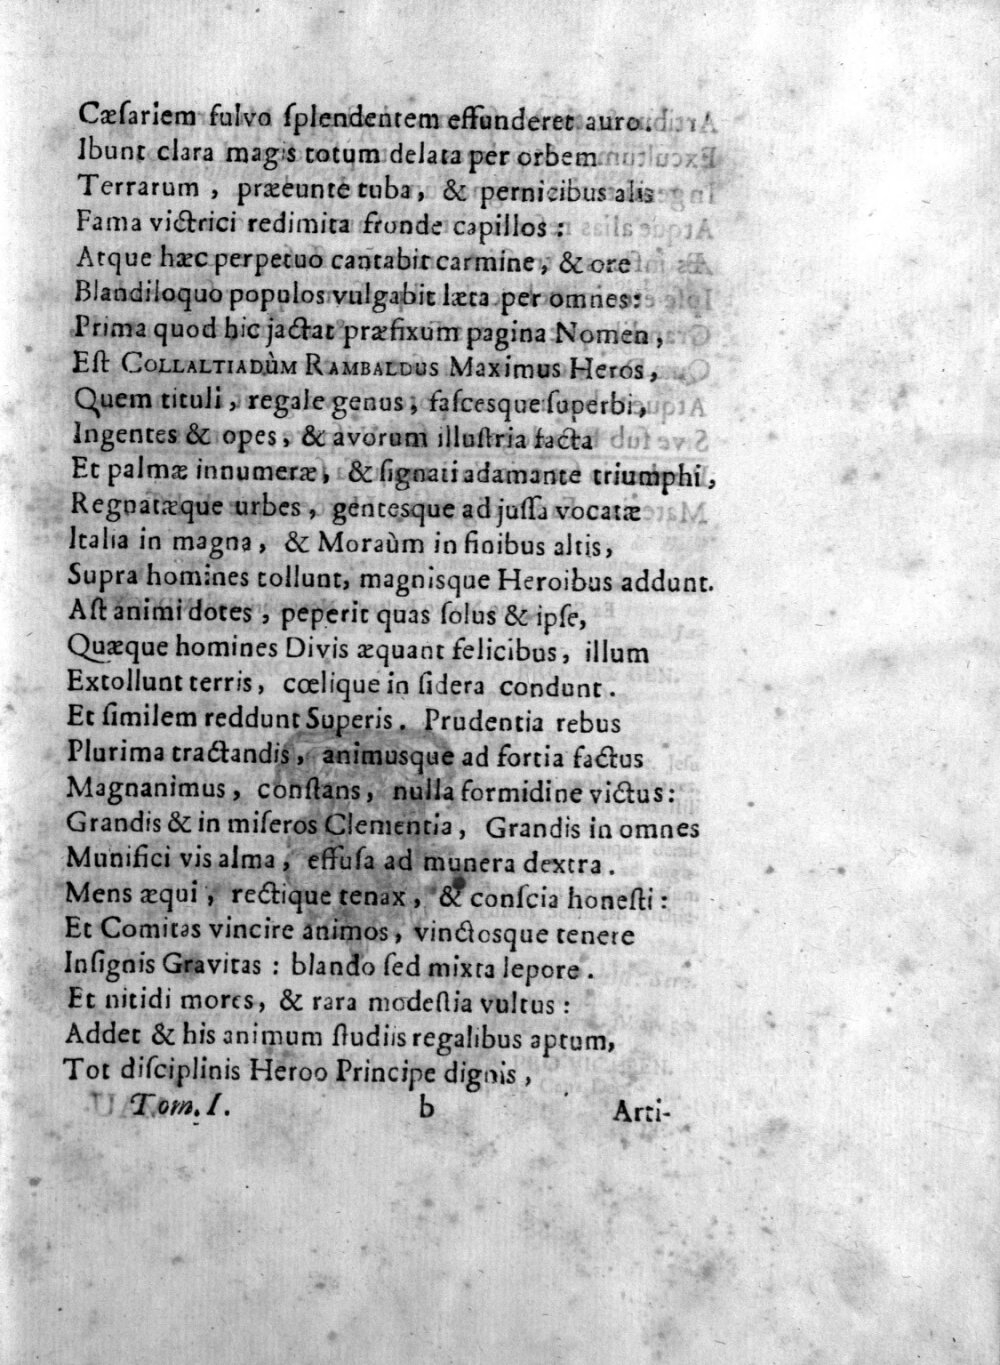 Cæſariem fulvo ſplendentem effunderet auro.
Ibunt clara magis totum delata per orbem
Terrarum, præeunte tuba, & pernicibus alis
Fama victrici redimita fronde capillos:
Atque hæc perpetuo cantabit carmine, & ore
Blandiloquo populos vulgabit læta per omnes:
Prima quod hic jactat præfixum pagina Nomen,
Eſt COLLALTIADÙM RAMBALDUS Maximus Heros,
Quem tituli, regale genus, faſcesque ſuperbi,
Ingentes & opes, & avorum illuſtria facta
Et palmæ innumeræ, & ſignati adamante triumphi,
Regnatæque urbes, gentesque ad juſſa vocatæ
Italia in magna, & Moraùm in finibus altis,
Supra homines tollunt, magnisque Heroibus addunt.
Aſt animi dotes, peperit quas ſolus & ipſe,
Quæque homines Divis æquant felicibus, illum
Extollunt terris, cœlique in ſidera condunt.
Et ſimilem reddunt Superis. Prudentia rebus
Plurima tractandis, animusque ad fortia factus
Magnanimus, conſtans, nulla formidine victus:
Grandis & in miſeros Clementia, Grandis in omnes
Munifici vis alma, effuſa ad munera dextra.
Mens æqui, rectique tenax, & conſcia honeſti:
Et Comitas vincire animos, vinctosque tenere
Inſignis Gravitas: blando ſed mixta lepore.
Et nitidi mores, & rara modeſtia vultus:
Addet & his animum ſtudiis regalibus aptum,
Tot diſciplinis Heroo Principe dignis,
Tom. I. b Arti-